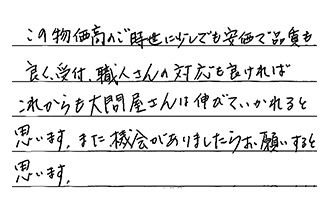 この物価高のご時世に少しでも安価で品質も
良く、受付、職人さんの対応も良ければ
これからも大問屋さんは伸びていかれると
思います。また機会がありましたらお願いすると
思います。